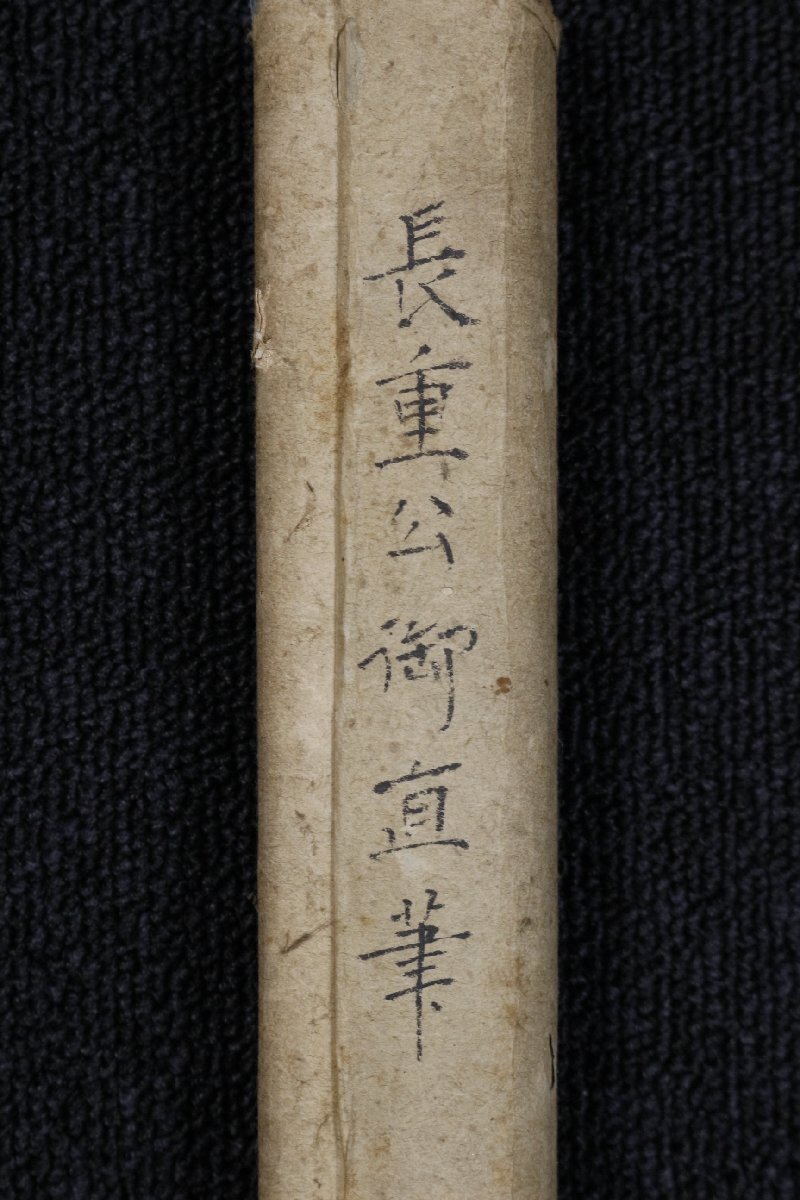 長重公御直筆